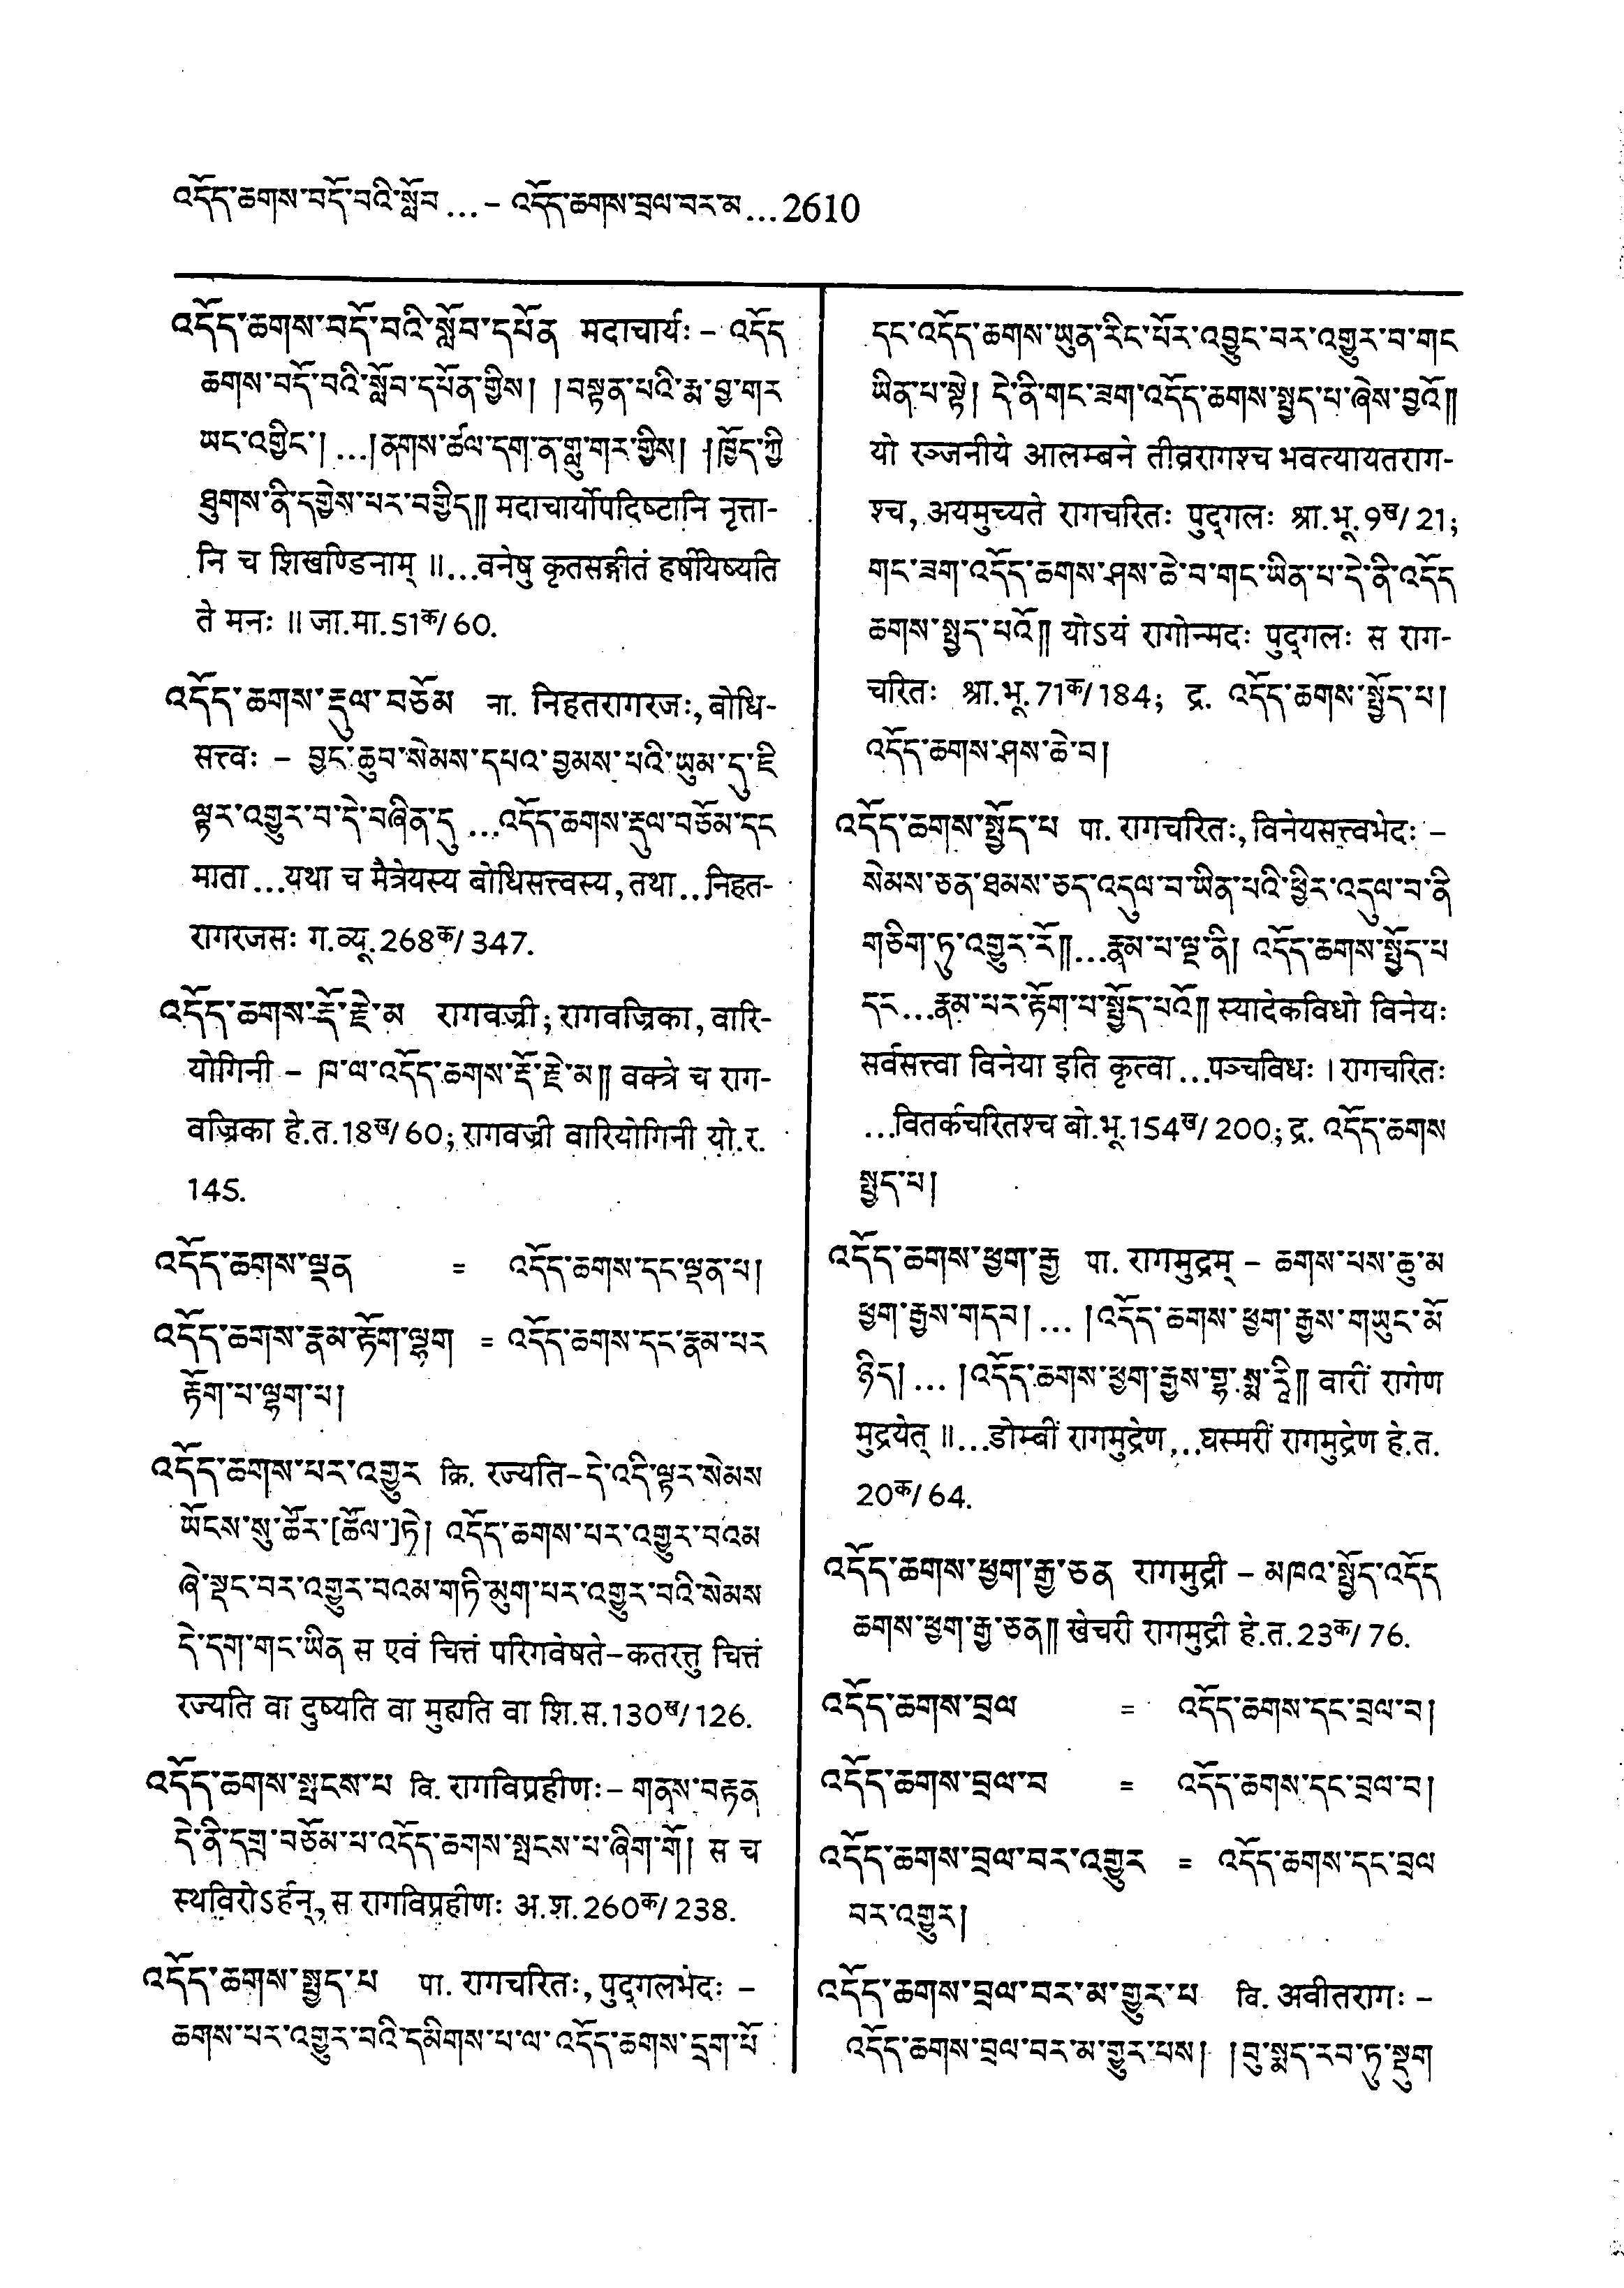 འདོད་ཆགས་བདོ་བའི་སློབ...– འདོད་ཆགས་བྲལ་བར་མ...2610
འདོད་ཆགས་བདོ་བའི་སློབ་དཔོན मदाचार्यः – འདོད
ཆགས་བདོ་བའི་སློབ་དཔོན་གྱིས། །བསྟན་པའི་རྨ་བྱ་གར
ཡང་འགྱིང་།...།ནགས་ཚལ་དག་ན་གླུ་གར་གྱིས། །ཁྱོད་ཀྱི
ཐུགས་ནི་དགྱེས་པར་བགྱིད།། मदाचार्योपदिष्टानि नृत्ता-
नि च शिखण्डिनाम् ॥...वनेषु कृतसङ्गीतं हर्षयिष्यति
ते मनः ॥ जा.मा.51क/60.
འདོད་ཆགས་རྡུལ་བཅོམ ना. निहतरागरजः, बोधि-
सत्त्वः – བྱང་ཆུབ་སེམས་དཔའ་བྱམས་པའི་ཡུམ་དུ་ཇི
ལྟར་འགྱུར་བ་དེ་བཞིན་དུ...འདོད་ཆགས་རྡུལ་བཅོམ་དང
माता...यथा च मैत्रेयस्य बोधिसत्त्वस्य, तथा...निहत-
रागरजसः ग.व्यू.268क/347.
འདོད་ཆགས་རྡོ་རྗེ་མ रागवज्री; रागवज्रिका, वारि-
योगिनी – ཁ་ལ་འདོད་ཆགས་རྡོ་རྗེ་མ།། वक्त्रे च राग-
वज्रिका हे.त.18ख/60; रागवज्री वारियोगिनी यो.र.
145.
འདོད་ཆགས་ལྡན = འདོད་ཆགས་དང་ལྡན་པ།
འདོད་ཆགས་རྣམ་རྟོག་ལྷག = འདོད་ཆགས་དང་རྣམ་པར
རྟོག་པ་ལྷག་པ།
འདོད་ཆགས་པར་འགྱུར क्रि. रज्यति–དེ་འདི་ལྟར་སེམས
ཡོངས་སུ་ཚོར་[ཚོལ་]ཏེ། འདོད་ཆགས་པར་འགྱུར་བའམ
ཞེ་སྡང་བར་འགྱུར་བའམ་གཏི་མུག་པར་འགྱུར་བའི་སེམས
དེ་དག་གང་ཡིན स एवं चित्तं परिगवेषते–कतरत्तु चित्तं
रज्यति वा दुष्यति वा मुह्यति वा शि.स.130ख/126.
འདོད་ཆགས་སྤངས་པ वि. रागविप्रहीणः – གནས་བརྟན
དེ་ནི་དགྲ་བཅོམ་པ་འདོད་ཆགས་སྤངས་པ་ཞིག་གོ། स च
स्थविरोऽर्हन्, स रागविप्रहीणः अ.श.260क/238.
འདོད་ཆགས་སྤྱད་པ पा. रागचरितः, पुद्गलभेदः –
ཆགས་པར་འགྱུར་བའི་དམིགས་པ་ལ་འདོད་ཆགས་དྲག་པོ
དང་འདོད་ཆགས་ཡུན་རིང་པོར་འབྱུང་བར་འགྱུར་བ་གང
ཡིན་པ་སྟེ། དེ་ནི་གང་ཟག་འདོད་ཆགས་སྤྱད་པ་ཞེས་བྱའོ།།
यो रञ्जनीये आलम्बने तीव्ररागश्च भवत्यायतराग-
श्च, अयमुच्यते रागचरितः पुद्गलः श्रा.भू.9ख/21;
གང་ཟག་འདོད་ཆགས་ཤས་ཆེ་བ་གང་ཡིན་པ་དེ་ནི་འདོད
ཆགས་སྤྱད་པའོ།། योऽयं रागोन्मदः पुद्गलः स राग-
चरितः श्रा.भू.71क/184; द्र. འདོད་ཆགས་སྤྱོད་པ།
འདོད་ཆགས་ཤས་ཆེ་བ།
འདོད་ཆགས་སྤྱོད་པ पा. रागचरितः, विनेयसत्त्वभेदः –
སེམས་ཅན་ཐམས་ཅད་འདུལ་བ་ཡིན་པའི་ཕྱིར་འདུལ་བ་ནི
གཅིག་ཏུ་འགྱུར་རོ།།...རྣམ་པ་ལྔ་ནི། འདོད་ཆགས་སྤྱོད་པ
དང...རྣམ་པར་རྟོག་པ་སྤྱོད་པའོ།། स्यादेकविधो विनेयः
सर्वसत्त्वा विनेया इति कृत्वा...पञ्चविधः । रागचरितः
...वितर्कचरितश्च बो.भू.154ख/200; द्र. འདོད་ཆགས
སྤྱད་པ།
འདོད་ཆགས་ཕྱག་རྒྱ पा. रागमुद्रम् – ཆགས་པས་ཆུ་མ
ཕྱག་རྒྱས་གདབ།... །འདོད་ཆགས་ཕྱག་རྒྱས་གཡུང་མོ
ཉིད།... །འདོད་ཆགས་ཕྱག་རྒྱས་གྷ་སྨ་རཱི།། वारीं रागेण
मुद्रयेत् ॥...डोम्बीं रागमुद्रेण,...घस्मरीं रागमुद्रेण हे.त.
20क/64.
འདོད་ཆགས་ཕྱག་རྒྱ་ཅན रागमुद्री – མཁའ་སྤྱོད་འདོད
ཆགས་ཕྱག་རྒྱ་ཅན།། खेचरी रागमुद्री हे.त.23क/76.
འདོད་ཆགས་བྲལ = འདོད་ཆགས་དང་བྲལ་བ།
འདོད་ཆགས་བྲལ་བ = འདོད་ཆགས་དང་བྲལ་བ།
འདོད་ཆགས་བྲལ་བར་འགྱུར = འདོད་ཆགས་དང་བྲལ
བར་འགྱུར།
འདོད་ཆགས་བྲལ་བར་མ་གྱུར་པ वि. अवीतरागः –
འདོད་ཆགས་བྲལ་བར་མ་གྱུར་པས། །བུ་སྨད་རབ་ཏུ་སྡུག